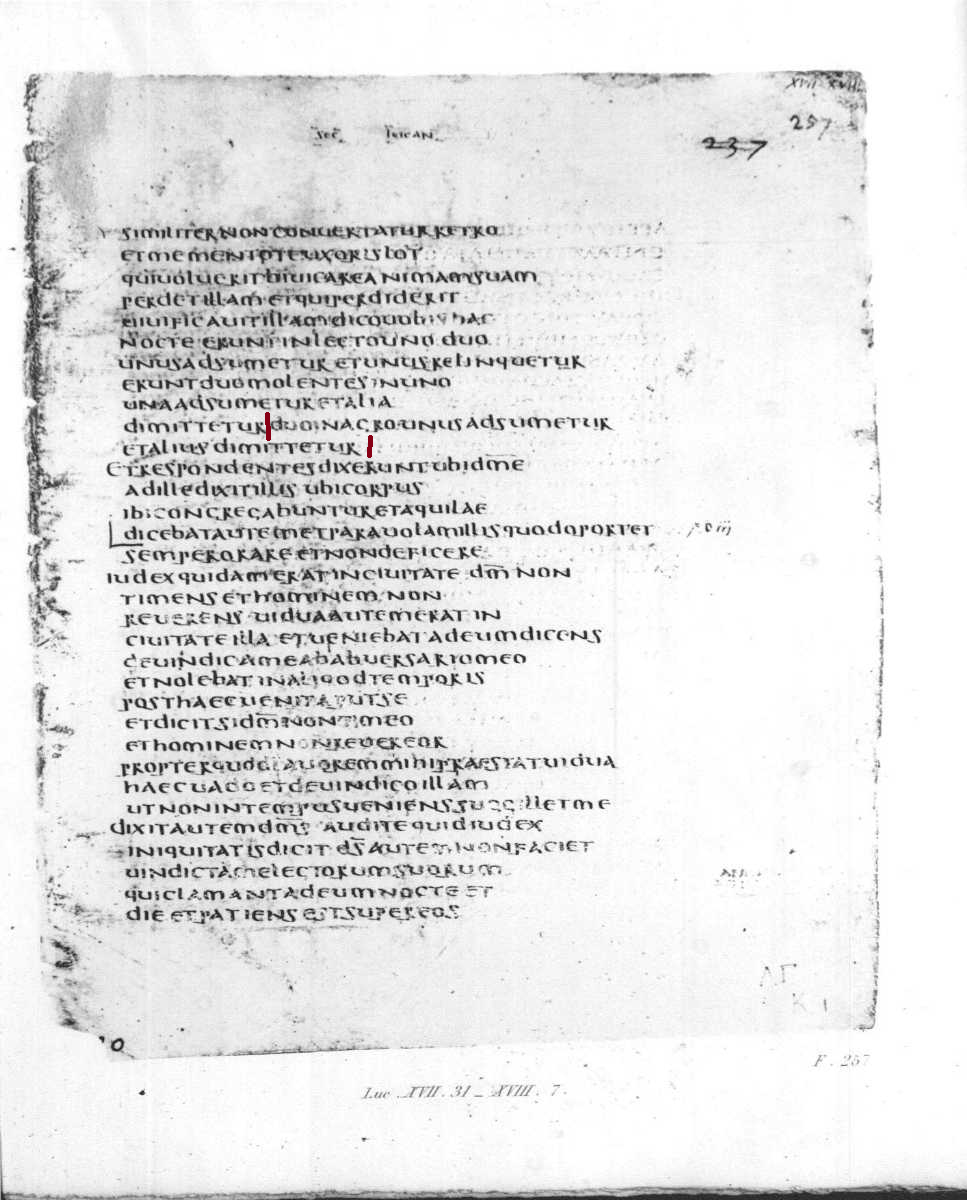 XVII XVIII
257
237
SEC LUCAN
SIMILITER NON CONUERTATUR RETRO
ET MEMENTOTE UXORIS LOT
QUI UOLUERIT UIUICARE ANIMAM SUAM
PERDET ILLAM ET QUI PERDIDERIT
UIUIFICAUIT ILLAM DICO UOBIS HAC
NOCTE ERUNT IN LECTO UNO DUO
UNUS ADSUMETUR ET UNUS RELINQUETUR
ERUNT DUO MOLENTES IN UNO
UNA ADSUMETUR ET ALIA
DIMITTETUR DUO IN AGRO UNUS ADSUMETUR
ET ALIUS DIMITTETUR
ET RESPONDENTES DIXERUNT UBI DM̅E
AD ILLE DIXIT ILLIS UBI CORPUS
IBI CONGREGABUNTUR ET AQUILAE
DICEBAT AUTEM ET PARAUOLAM ILLIS QUOD OPORTET
SEMPER ORARE ET NON DEFICERE
IUDEX QUIDAM ERAT IN CIUITATE DM̅ NON
TIMENS ET HOMINEM NON
REUERENS UIDUA AUTEM ERAT IN
CIUITATE ILLA ET UENIEBAT AD EUM DICENS
DEUINDICA ME AB ABUERSARIO MEO
ET NOLEBAT IN ALIQOD TEMPORIS
POST HAEC UENIT APUT SE
ET DICIT SI DM̅ NON TIMEO
ET HOMINEM NON REUEREOR
PROPTER QUOD LAUOREM MIHI PRAESTAT UIDUA
HAEC UADO ET DEUINDICO ILLAM
UT NON IN TEMPUS UENIENS SUGGILLET ME
DIXIT AUTEM DM̅S AUDITE QUID IUDEX
INIQUITATIS DICIT DS̅ AUTEM NON FACIET
UINDICTAM ELECTORUM SUORUM
QUI CLAMANT AD EUM NOCTE ET
DIE ET PATIENS EST SUPER EOS
F. 257
Luc. XVII. 31 _ XVIII. 7.